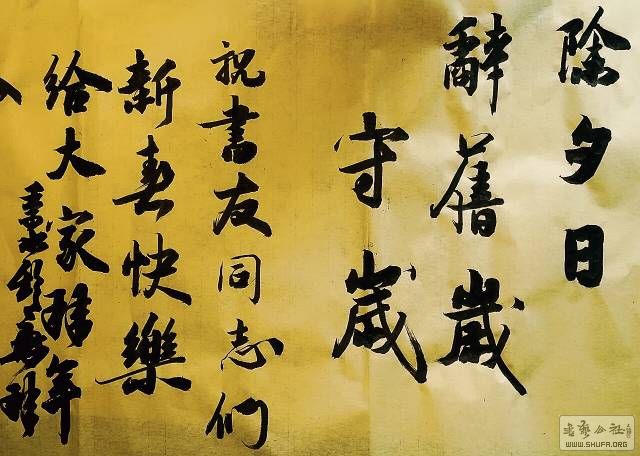 除夕日
辭舊歲
守歲
祝書友同志们
新春快樂
给大家拜年
WWW.SHUFA.ORG